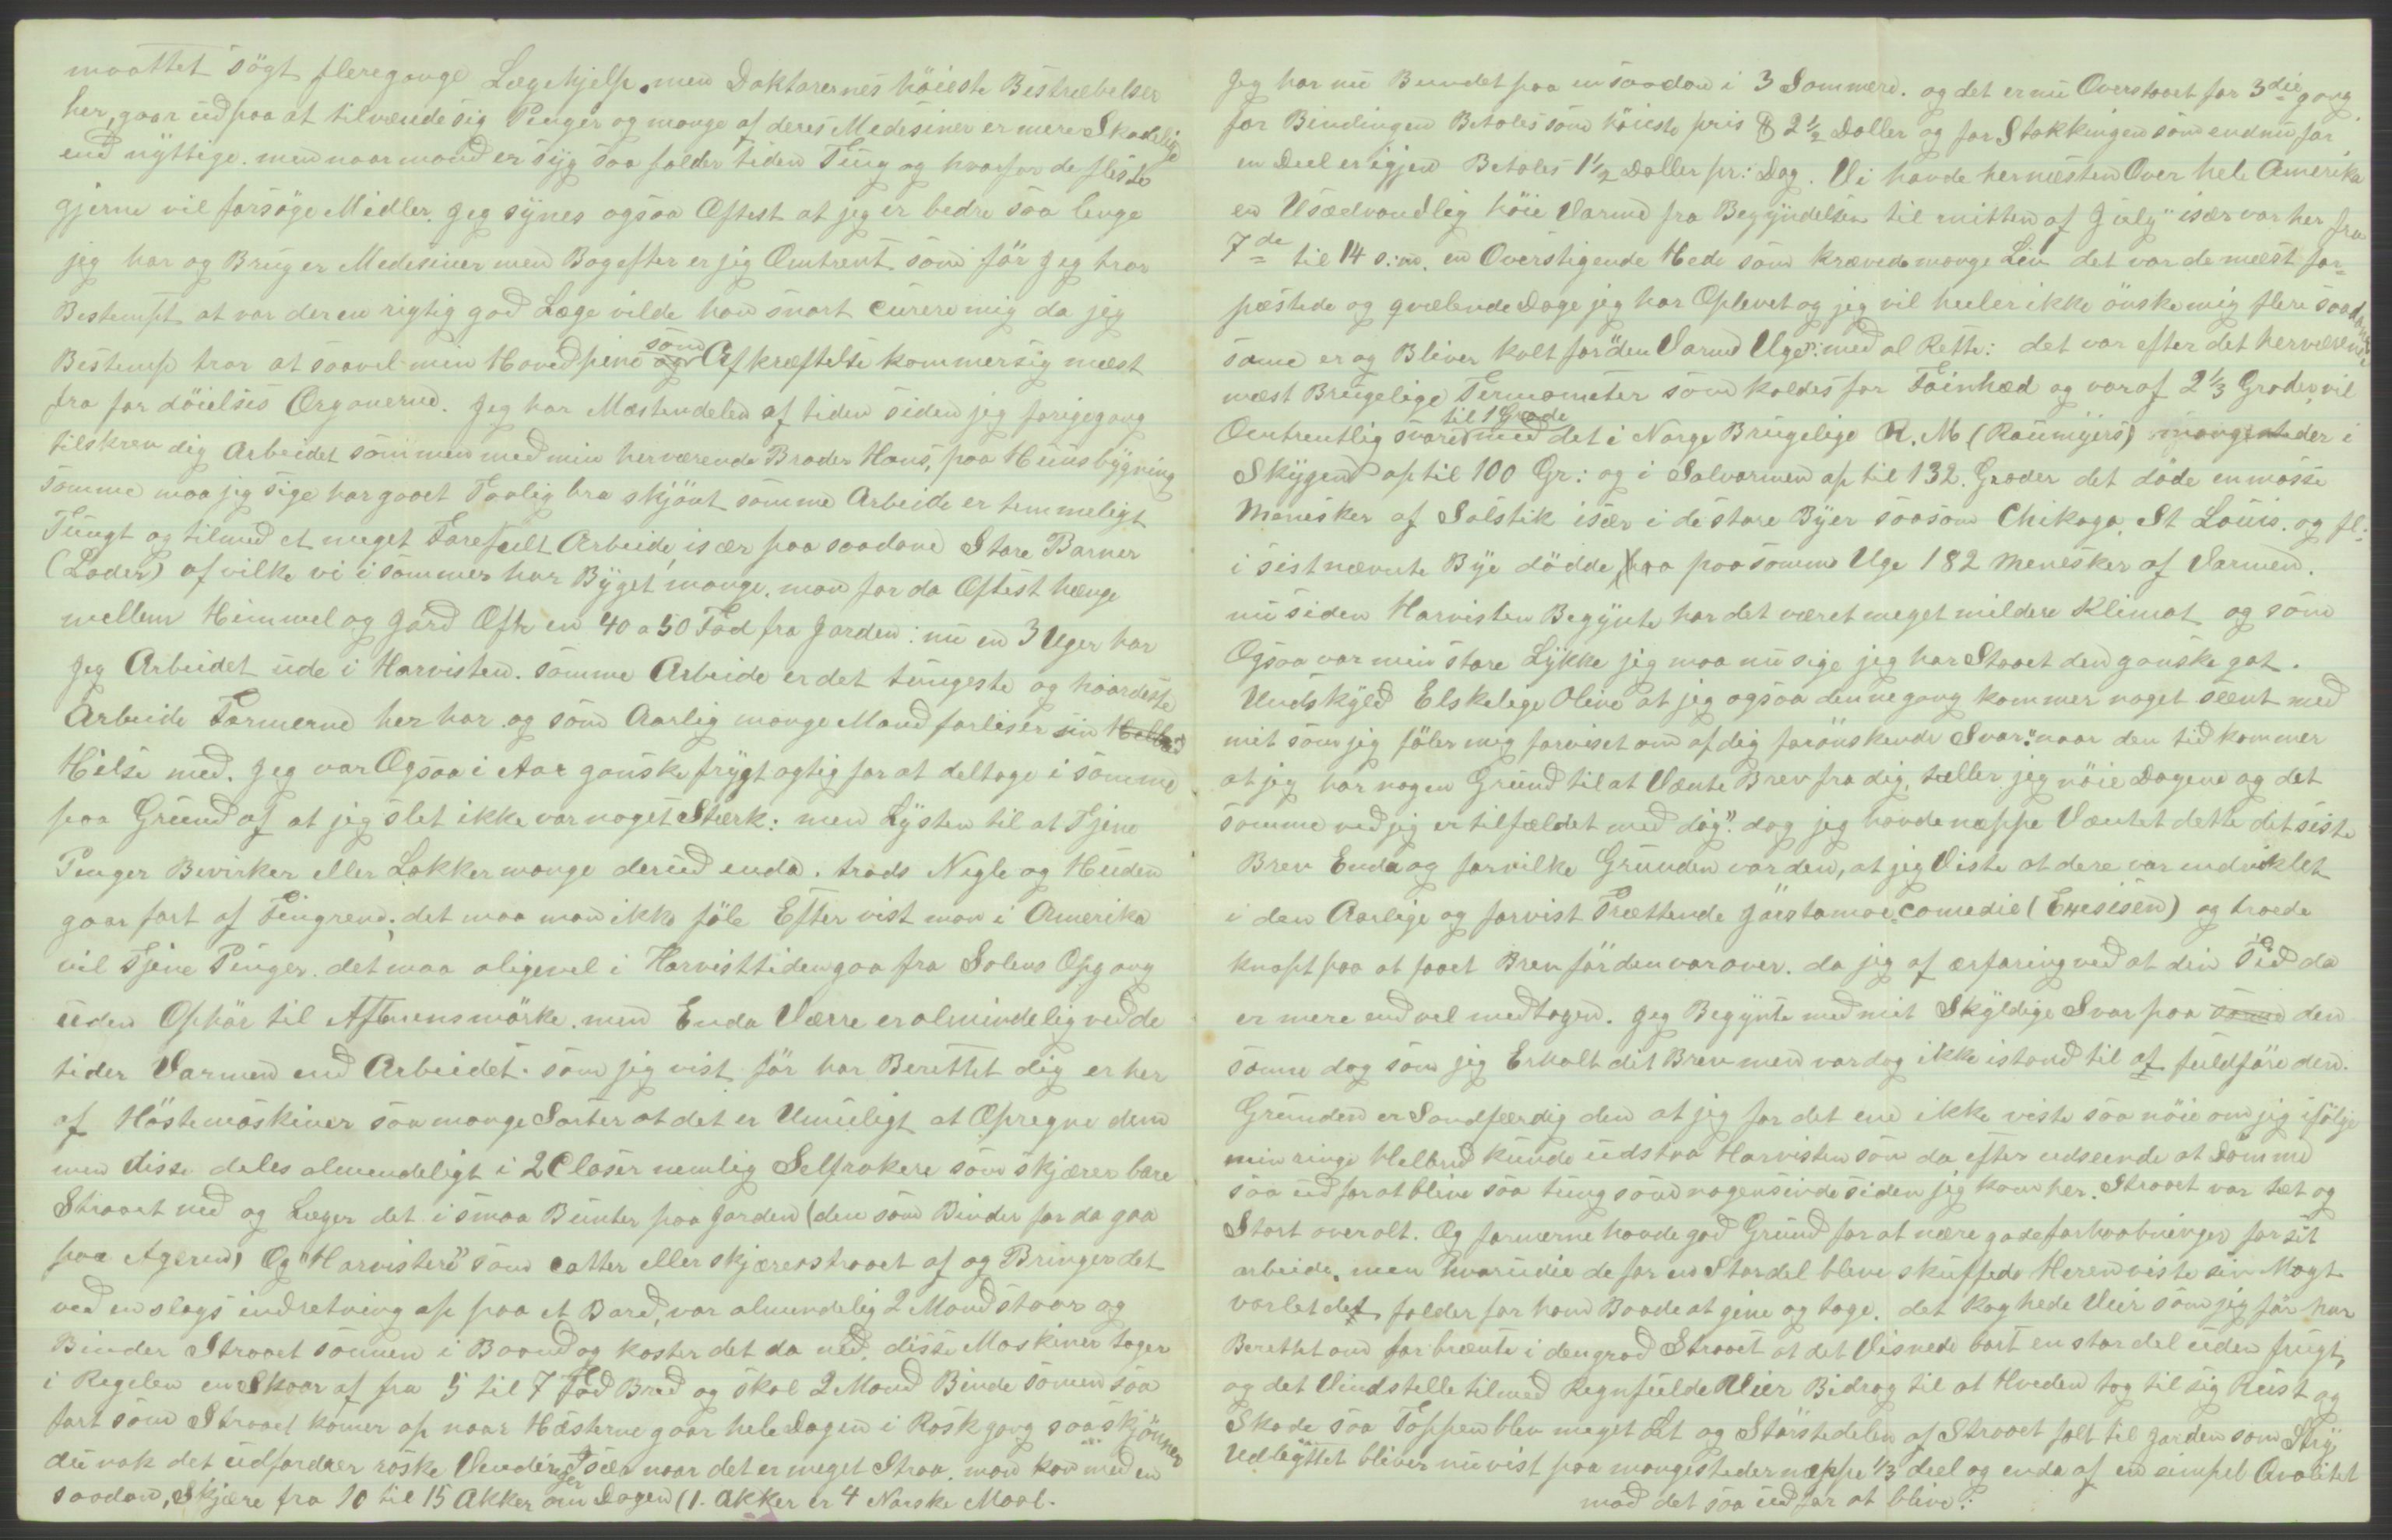 maattet søgt fleregange Lægehjelp. men Doktorernes høieste Bestræbelser
her, gaar ud paa at tilvende sig Penger og mange af deres Medesiner er mere Skadelige
end nyttige. men naar mand er syg saa falder tiden Tung og hvorfor de fleste
gjerne vil forsøge Midler. Jeg synes ogsaa Oftest at jeg er bedre saa lenge
jeg har og Bruger Medesiner men Bagefter er jeg Omtrent som før Jeg tror
Bestempt at var der en rigtig god Læge vilde han snart curere mig da jeg
Bestemp tror at saavel min Hovedpine som Afkræftelse kommer sig mæst
fra fordøielses Organerne. Jeg har Mæstendelen af tiden siden jeg forigegang
tilskrev dig Arbeidet sammen med min herværende Broder Hans, paa Huusbygning
somme maa jeg sige har gaaet Taalig bra skjønt somme Arbeide er temmeligt
Tungt og tilmed et meget Farefuld Arbeide, især paa saadane Store Barner
(Lader) af vilke vi i sommer har Bÿget mange. man faar da Oftest hænge
mellem Himmel og Jord Ofte en 40 a 50 Fod fra Jorden: nu en 3 Uger har
Jeg Arbeidet ude i Harvisten. somme Arbeide er det tungeste og haardeste
Arbeide Farmerne her har og som Aarlig mange Mand forliser sin
Hilse med. Jeg var Ogsaa i Aar ganske frygtagtig for at deltage i somme
paa Grund af at jeg slet ikke var noget Stærk: men Lysten til at Tjene
Penger Bevirker eller Lokker mange derud enda. trods Negle og Huden
gaar fort af Fingrene, det maa man ikke føle Efter vist man i Amerika
vil Tjene Penger. det maa aligevel i Harvisttiden gaa fra Solens Opgang
uden Ophør til Aftenensmørke. men Enda Værre er almindelig ved de
tider Varmen end Arbeidet. som jeg vist før har Berettet dig er her
af Høstemaskiner saa mange Sorter at det er Umuligt at Opregne dem
men disse deles almendeligt i 2 Claser nemlig Selfrakere som skjærer bare
Straaet ned og Læger det i smaa Bunter paa Jorden (den som Binder faar da gaa
paa Ageren) Og "Harvistere" som catter eller skjærer straaet af og Bringer det
ved en slags indretning op paa et Bord, var almendelig 2 Mand staar og
Binder Straaet sammen i Baand og kaster det da ned. disse Maskiner tager
i Regelen en Skaar af fra 5 til 7 Fod Bred og skal 2 Mand Binde somen saa
fort som Straaet komer op naar Hæsterne gaar hele Dagen i Rask gang saa skjønner
du nok det udfordrer raske Vendinger Især naar det er meget Straa. man kan med en
saadan, Skjære fra 10 til 15 Akker om Dagen (1. Akker er 4 Norske Maal.
Jeg har nu Bundet paa en saadan i 3 Sommere. og det er nu Overstaaet for 3die gang
for Bindingen Betales som høieste pris 2 1/2 Doller og for Stakkingen som endnu for
en Deel er igjen Betales 1 1/2 Doller pr: Dag. Vi havde her næsten Over hele Amerika
en Usædvandlig høie Varme fra Begyndelsen til mitten af July" især var her fra
7de til 14 s:m. en Overstigende Hede som krævede mange Liv det var de mæst for-
pæstede og qvælende Dage jeg har Oplevet og jeg vil heeler ikke ønske mig flere saadane
same er og Bliver kalt for "den Varme Uge": med al Rette: det var efter det herværende
mæst Brugelige Termometer som kaldes for Fainhæd og var af 2 1/3 Grader vil
Omtrentlig svare til 1 Grade med det i Norge Brugelige R. M (Raumyers) der i
Skygen op til 100 Gr: og i Solvarmen op til 132. Grader det døde en masse
Menesker af Solstik især i de store Byer saasom Chikago, St Louis. og fl:
i sistnævnte Bye dødde paa somme Uge 182 Menesker af Varmen.
nu siden Harvisten Begynte har det været meget mildere Klimat og som
Ogsaa var min store Lykke jeg maa nu sige jeg har Staaet den ganske got.
Undskyld Elskelige Oline at jeg ogsaa denne gang kommer noget sænt med
mit som jeg føler mig forviset om af dig forønskende Svar: naar den tid kommer
at jeg har nogen Grund til at Vænte Brev fra dig, tæller jeg nøie Dagene og det
somme ved jeg er tilfældet med dig". dog jeg havde næppe Væntet dette det siste
Brev Enda og forvilke Grunden var den, at jeg Viste at dere var indviklet
i den Aarlige og forvist Trættende comedie og troede
knapt paa at faaet Brev før den var over. da jeg af ærfaring ved at din Tid da
er mere end vel medtagen. Jeg Begynte med mit Skyldige Svar paa den
somme dag som jeg Erholt dit Brev men var dog ikke istand til at fuldføre den.
Grunden er Sandfærdig den at jeg for det ene ikke viste saa nøie om jeg ifølge
min ringe Helbred kunde udstaa Harvisten som da efter udseende at Dømme
saa ud for at blive saa tung som nogensinde siden jeg kom her. Straaet var tæt og
Stort overalt. Og farmerne havde god Grund for at nære gode forhaabninger for sit
arbeide. men hvorudie de for en Stor del bleve skuffede Heren viste sin Magt
var let det falder for ham Baade at give og tage. det Kog hede Veir som jeg før har
Berettet om forbrænte i den grad Straaet at det Visnede bort en stor del uden frugt,
og det Vindstelle tilmed Regnfulde Veir Bidrog til at Hveden tog til sig Rust og
Skade saa Toppen blev meget Let og Størstedelen af Straaet falt til Jorden som Stry
Udbyttet bliver nu vist paa mangesteder næppe 1/3 deel og enda af en simpel Qvalitet
mod det saa ud for at blive: